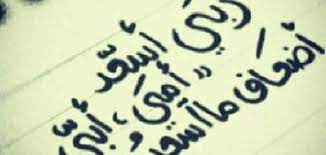 ربي أسعد
" أمي ، أبي
أضعاف ما أسعد